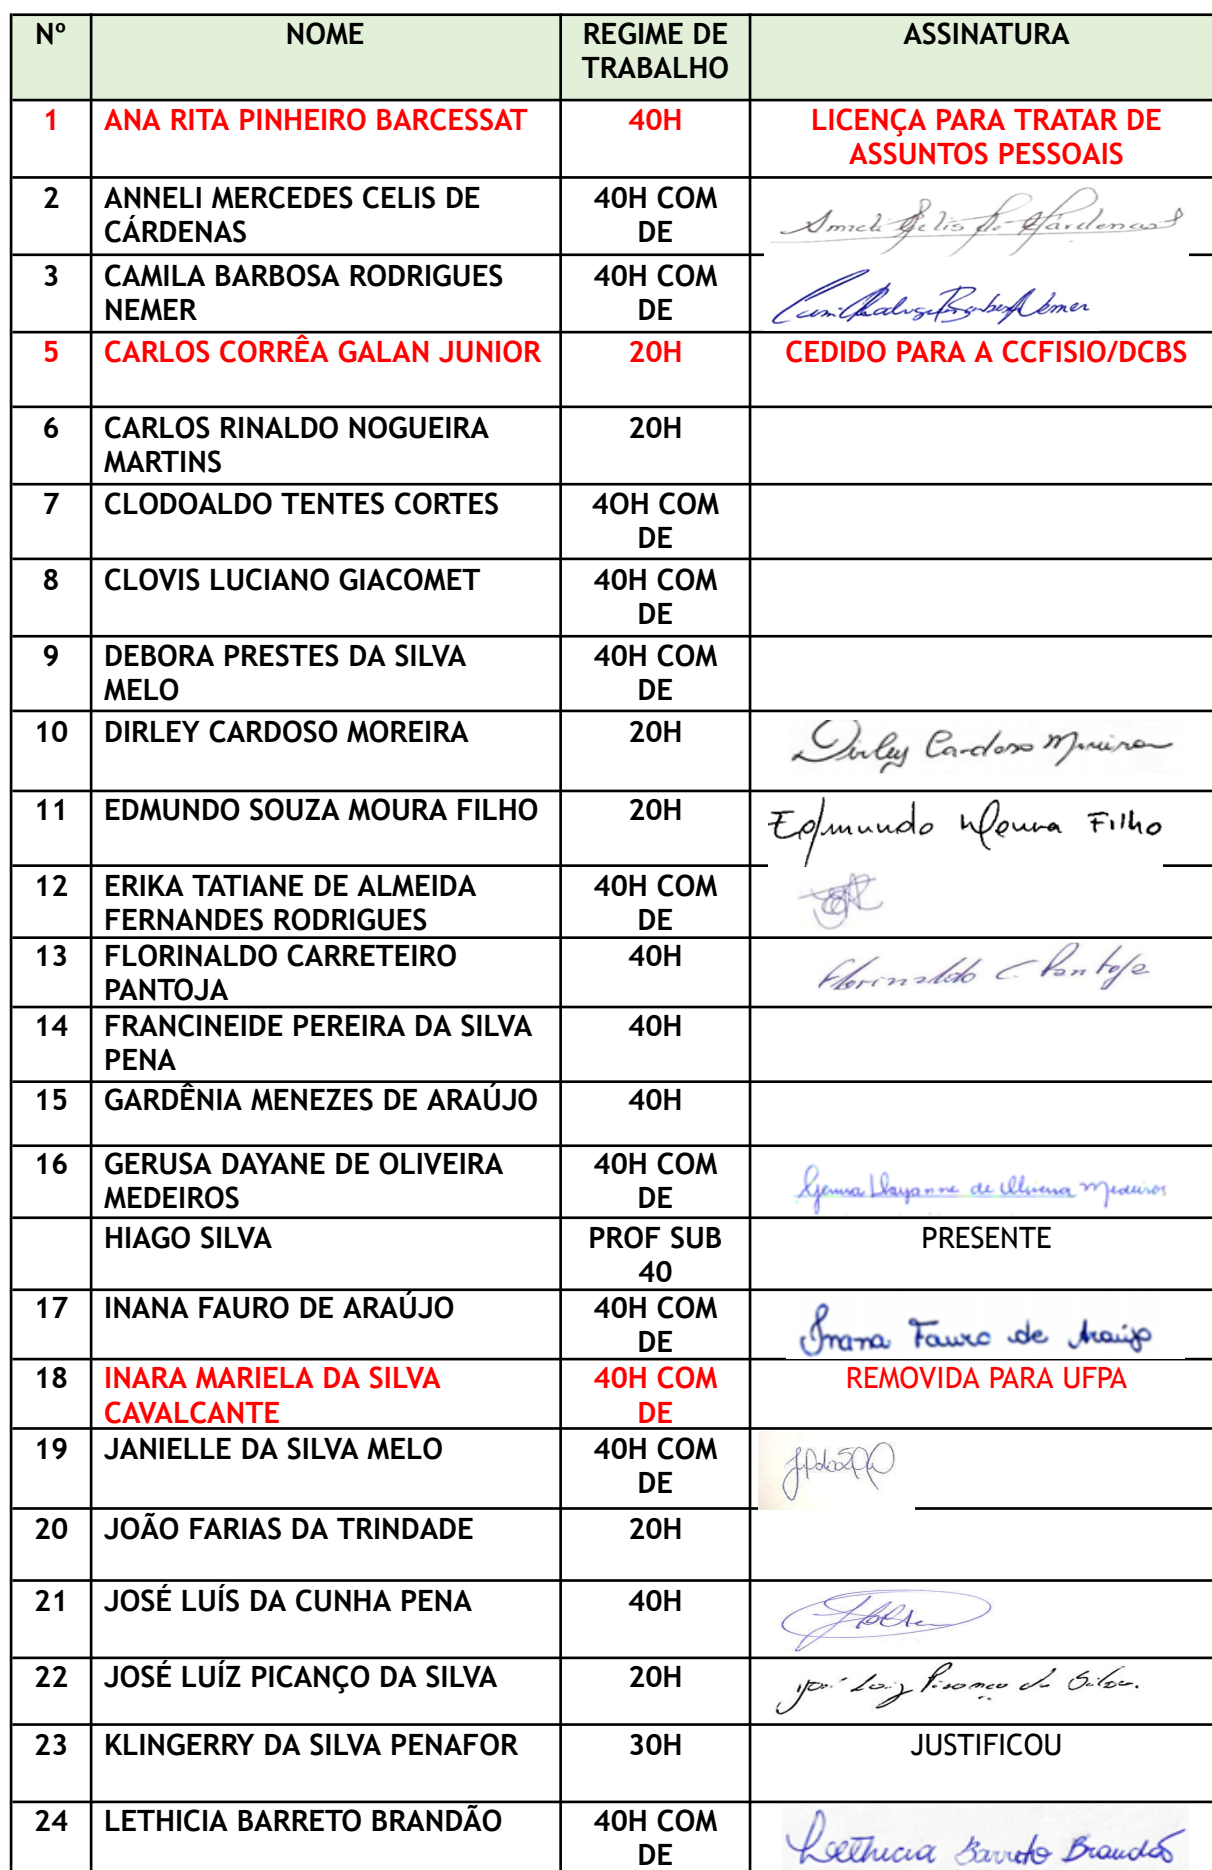 Nº NOME REGIME DE ASSINATURA
TRABALHO
1 ANA RITA PINHEIRO BARCESSAT 40H LICENÇA PARA TRATAR DE
ASSUNTOS PESSOAIS
2 ANNELI MERCEDES CELIS DE 40H COM
CÁRDENAS DE
3 CAMILA BARBOSA RODRIGUES 40H COM
NEMER DE
5 CARLOS CORRÊA GALAN JUNIOR 20H CEDIDO PARA A CCFISIO/DCBS
6 CARLOS RINALDO NOGUEIRA 20H
MARTINS
7 CLODOALDO TENTES CORTES 4OH COM
DE
8 CLOVIS LUCIANO GIACOMET 40H COM
DE
9 DEBORA PRESTES DA SILVA 40H COM
MELO DE
10 DIRLEY CARDOSO MOREIRA 20H Dirley Cardoso Moreira
11 EDMUNDO SOUZA MOURA FILHO 20H Edmundo Moura Filho
12 ERIKA TATIANE DE ALMEIDA 40H COM
FERNANDES RODRIGUES DE
13 FLORINALDO CARRETEIRO 40H Florinaldo C. Pantoja
PANTOJA
14 FRANCINEIDE PEREIRA DA SILVA 40H
PENA
15 GARDÊNIA MENEZES DE ARAÚJO 40H
16 GERUSA DAYANE DE OLIVEIRA 40H COM
MEDEIROS DE Gerusa Dayanne de Oliveira Medeiros
HIAGO SILVA PROF SUB PRESENTE
40
17 INANA FAURO DE ARAÚJO 40H COM
DE Inana Fauro de Araújo
18 INARA MARIELA DA SILVA 40H COM REMOVIDA PARA UFPA
CAVALCANTE DE
19 JANIELLE DA SILVA MELO 40H COM
DE
20 JOÃO FARIAS DA TRINDADE 20H
21 JOSÉ LUÍS DA CUNHA PENA 40H
22 JOSÉ LUÍZ PICANÇO DA SILVA 20H José Luiz Picanço da Silva.
23 KLINGERRY DA SILVA PENAFOR 30H JUSTIFICOU
24 LETHICIA BARRETO BRANDÃO 40H COM
DE Lethicia Barreto Brandão